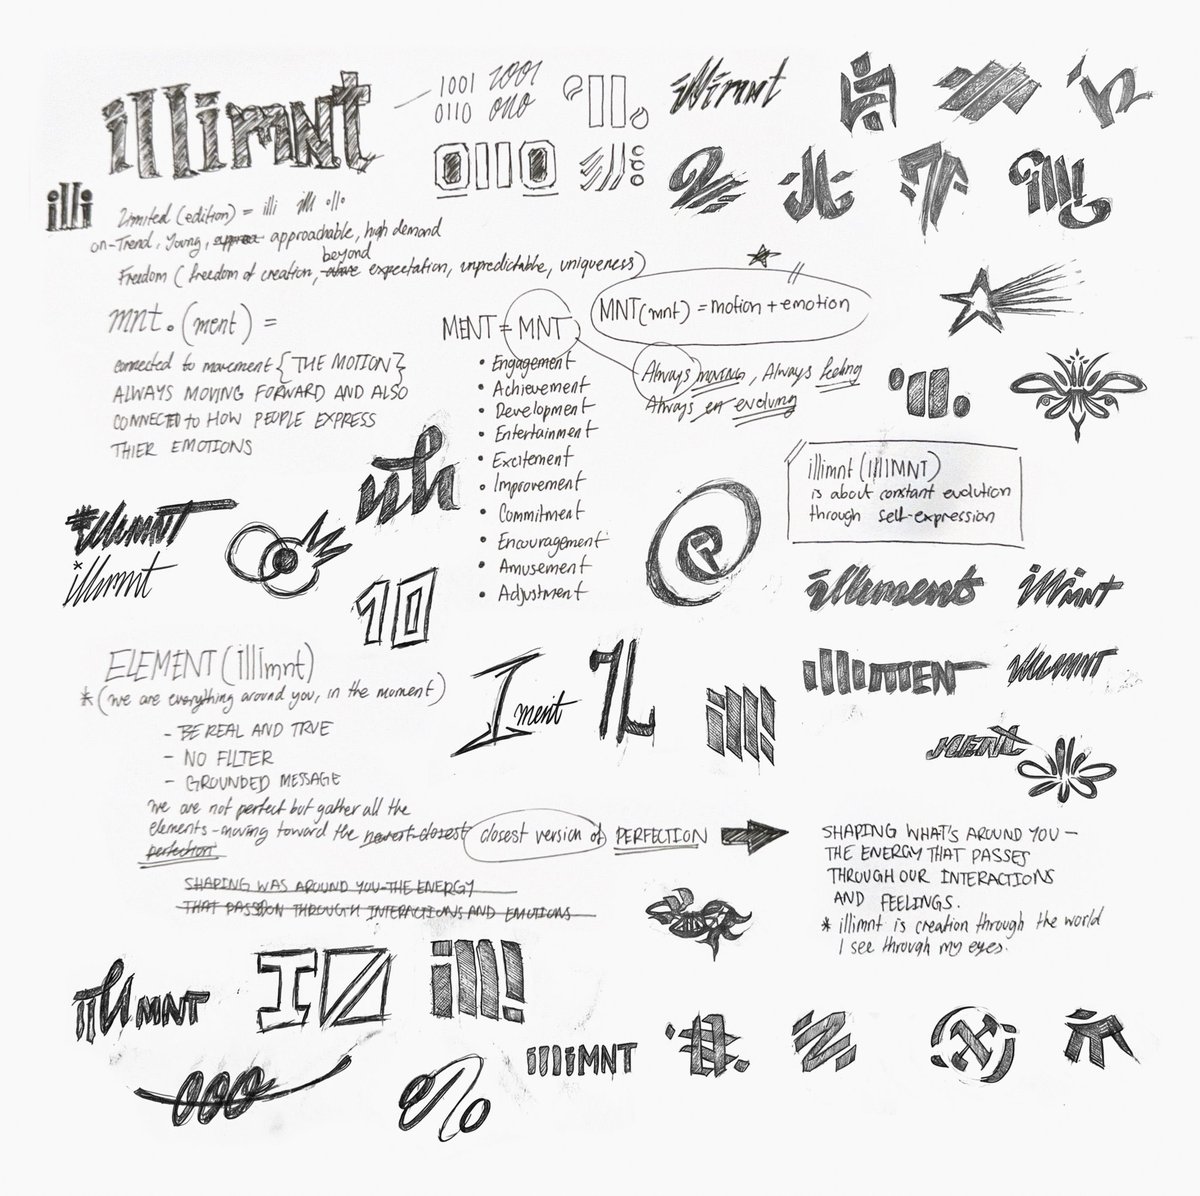 illimnt
1001 1001
0110 0110
illimnt
0110
illi
illi
Limited (edition) = illi illi ollo
on-Trend, Young, approachable, high demand
beyond
Freedom (freedom of creation, expectation, unpredictable, uniqueness)
mnt. (ment) =
connected to movement {THE MOTION}
ALWAYS MOVING FORWARD AND ALSO
CONNECTED to HOW PEOPLE EXPRESS
THIER EMOTIONS
MENT = MNT
• Engagement
• Achievement
• Development
• Entertainment
• Excitement
• Improvement
• Commitment
• Encouragement
• Amusement
• Adjustment
MNT (mnt) = motion + emotion
Always moving, Always feeling
Always en evolving
illimnt (IllIMNT)
is about constant evolution
through self-expression
illimnt
illimnt
10
illiment
illimnt
ELEMENT (illimnt)
* (we are everything around you, in the moment)
- BE REAL AND TRUE
- NO FILTER
- GROUNDED MESSAGE
we are not perfect but gather all the
elements - moving toward the nearest closest closest version of PERFECTION
perfection
SHAPING WAS AROUND YOU-THE ENERGY
THAT PASSION THROUGH INTERACTIONS AND EMOTIONS
I ment
ill!
illimnt
SHAPING WHAT'S AROUND YOU -
THE ENERGY THAT PASSES
THROUGH OUR INTERACTIONS
AND FEELINGS.
* illimnt is creation through the world
I see through my eyes.
illiMNT
ill!
illiMNT